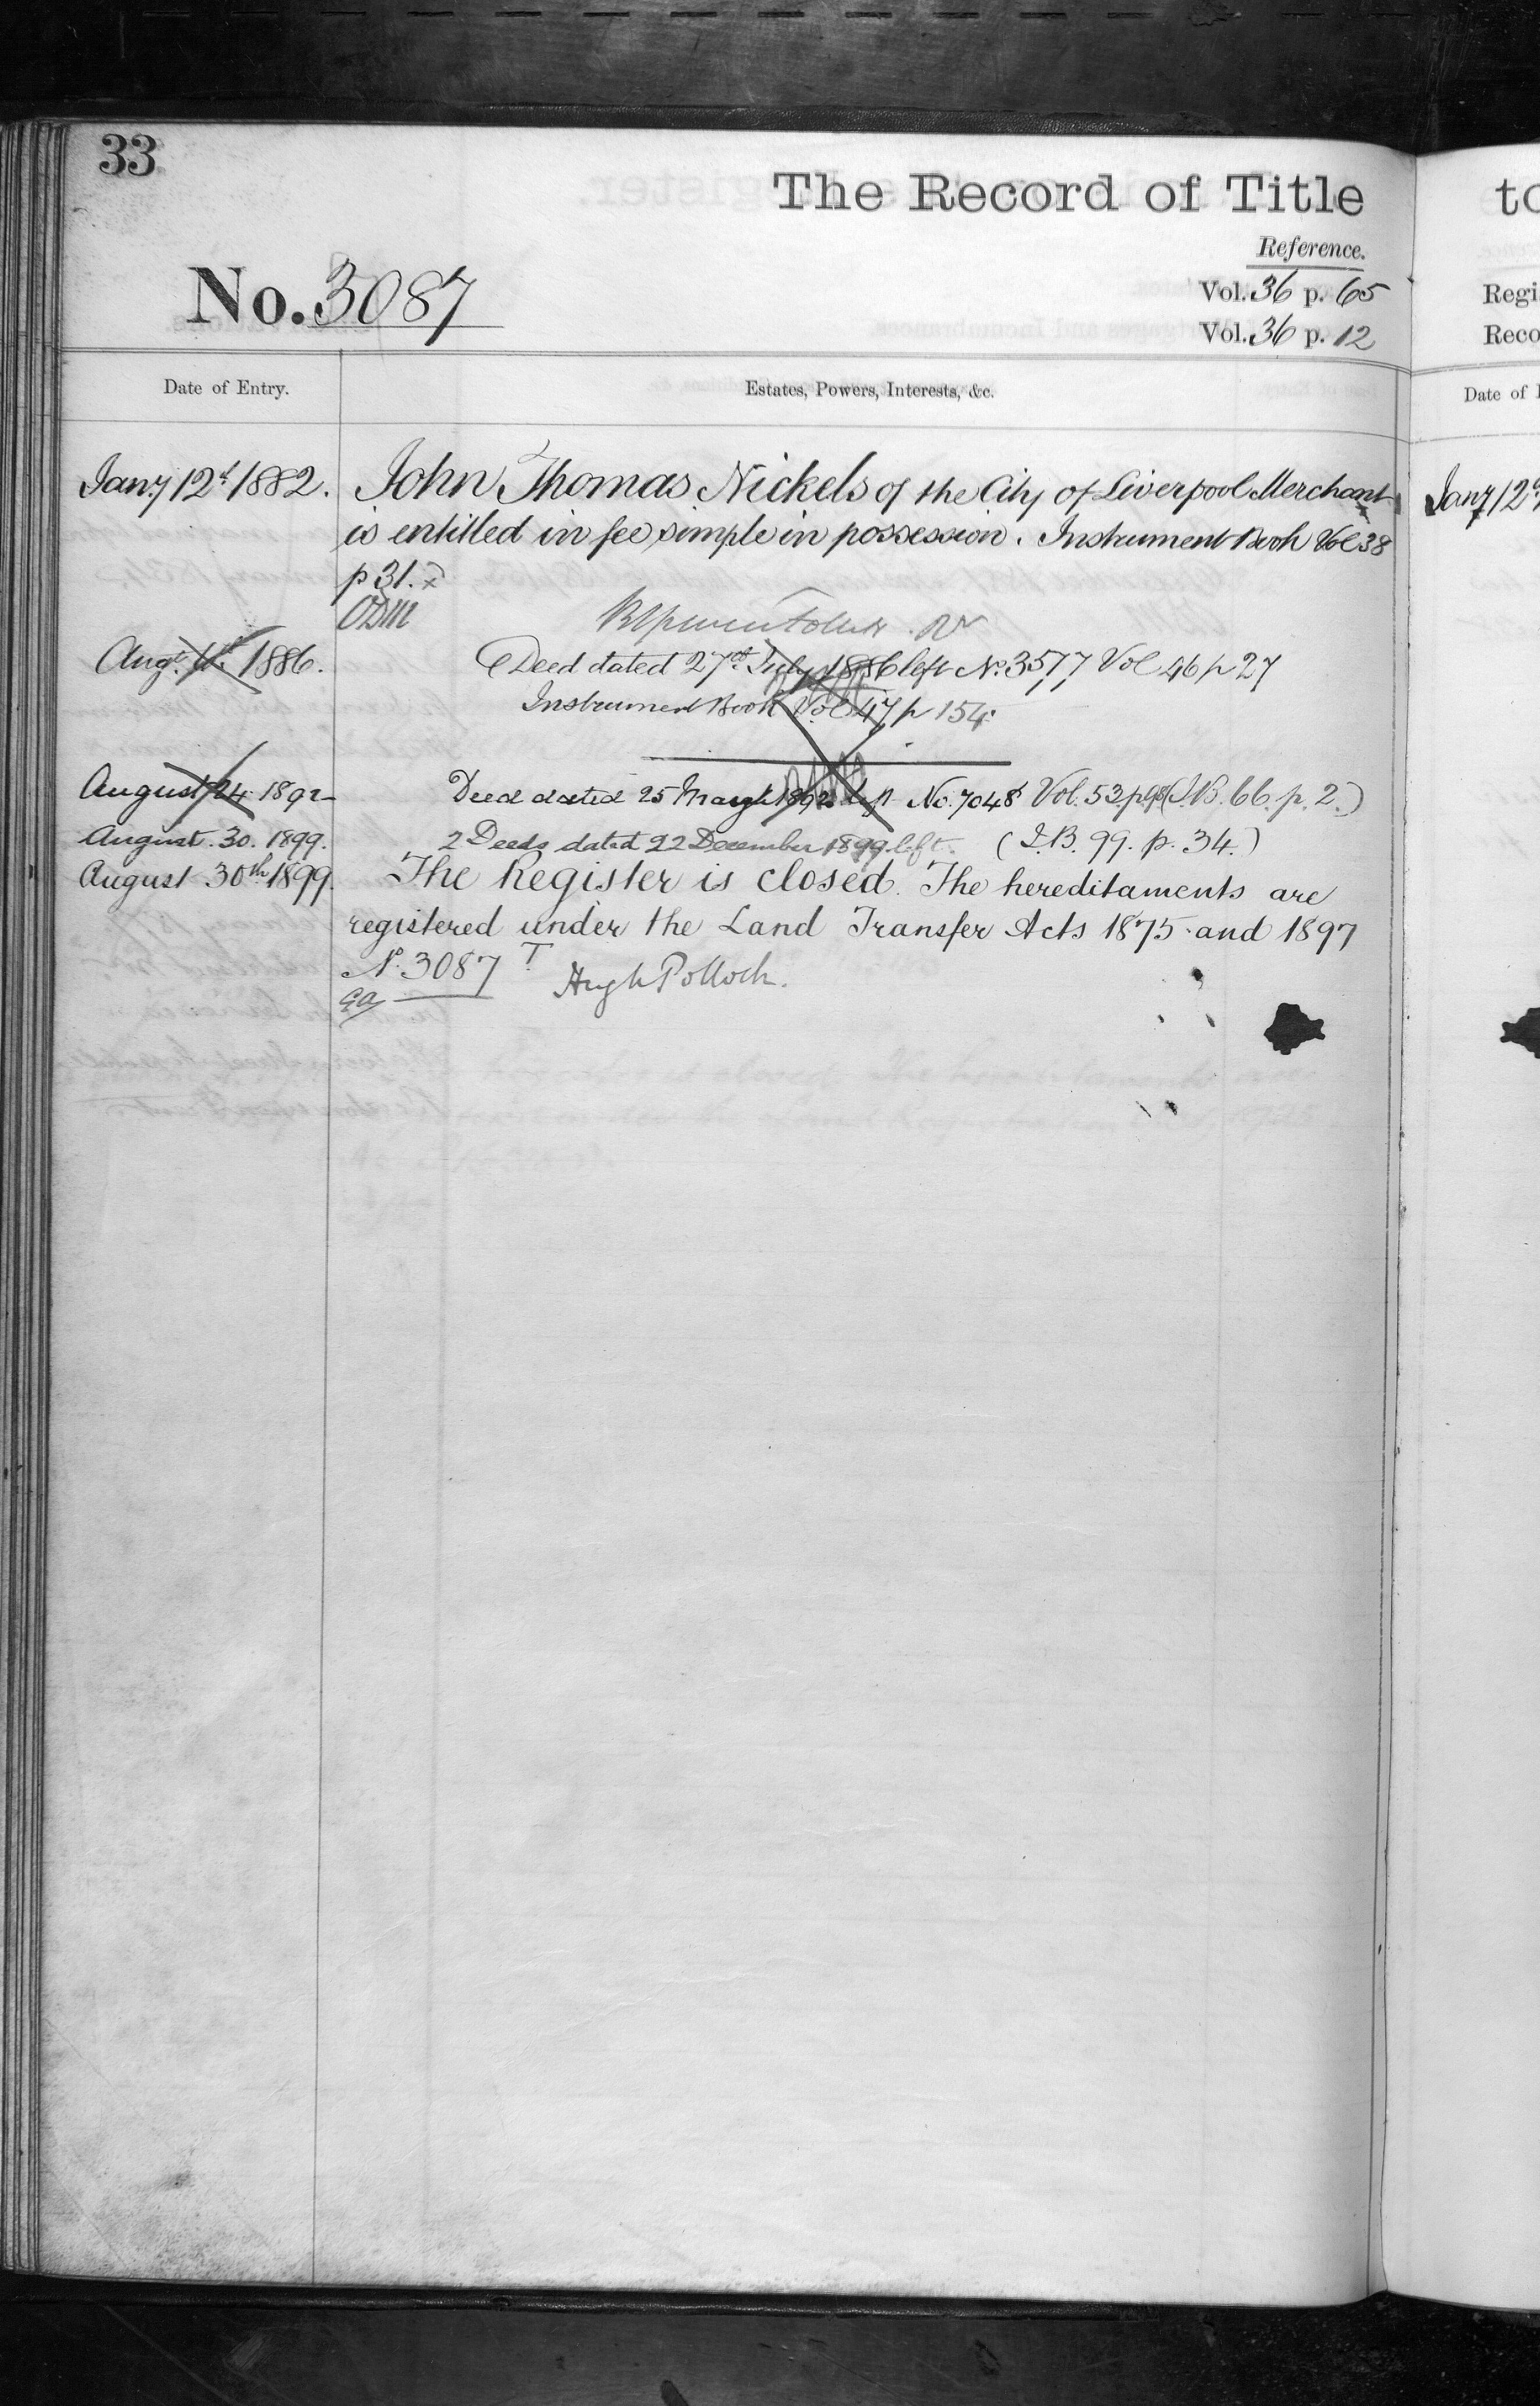 33
The Record of Title
Reference.
No. 3087
Vol. 36 p. 65
Vol. 36 p. 12
Date of Entry.
Estates, Powers, Interests, &c.
Jany 12th 1882. John Thomas Nickels of the City of Liverpool Merchant
is entitled in fee simple in possession. Instrument Book Vol 38
p 31.
Augt. 1886. Deed dated 27th July 1886 left No. 3577 Vol 46 p 27
Instrument Book Vol 47 p 154.
August 24 1892 Deed dated 25 March 1892 left No. 7048 Vol. 53. p 98 (I.B. 66. p. 2.)
August. 30. 1899. 2 Deeds dated 22 December 1899 left. (I.B. 99. p. 34.)
August 30th 1899. The Register is closed. The hereditaments are
registered under the Land Transfer Acts 1875 and 1897
No. 3087 T Hugh Pollock.
to
Regi
Reco
Date of
Jany 12